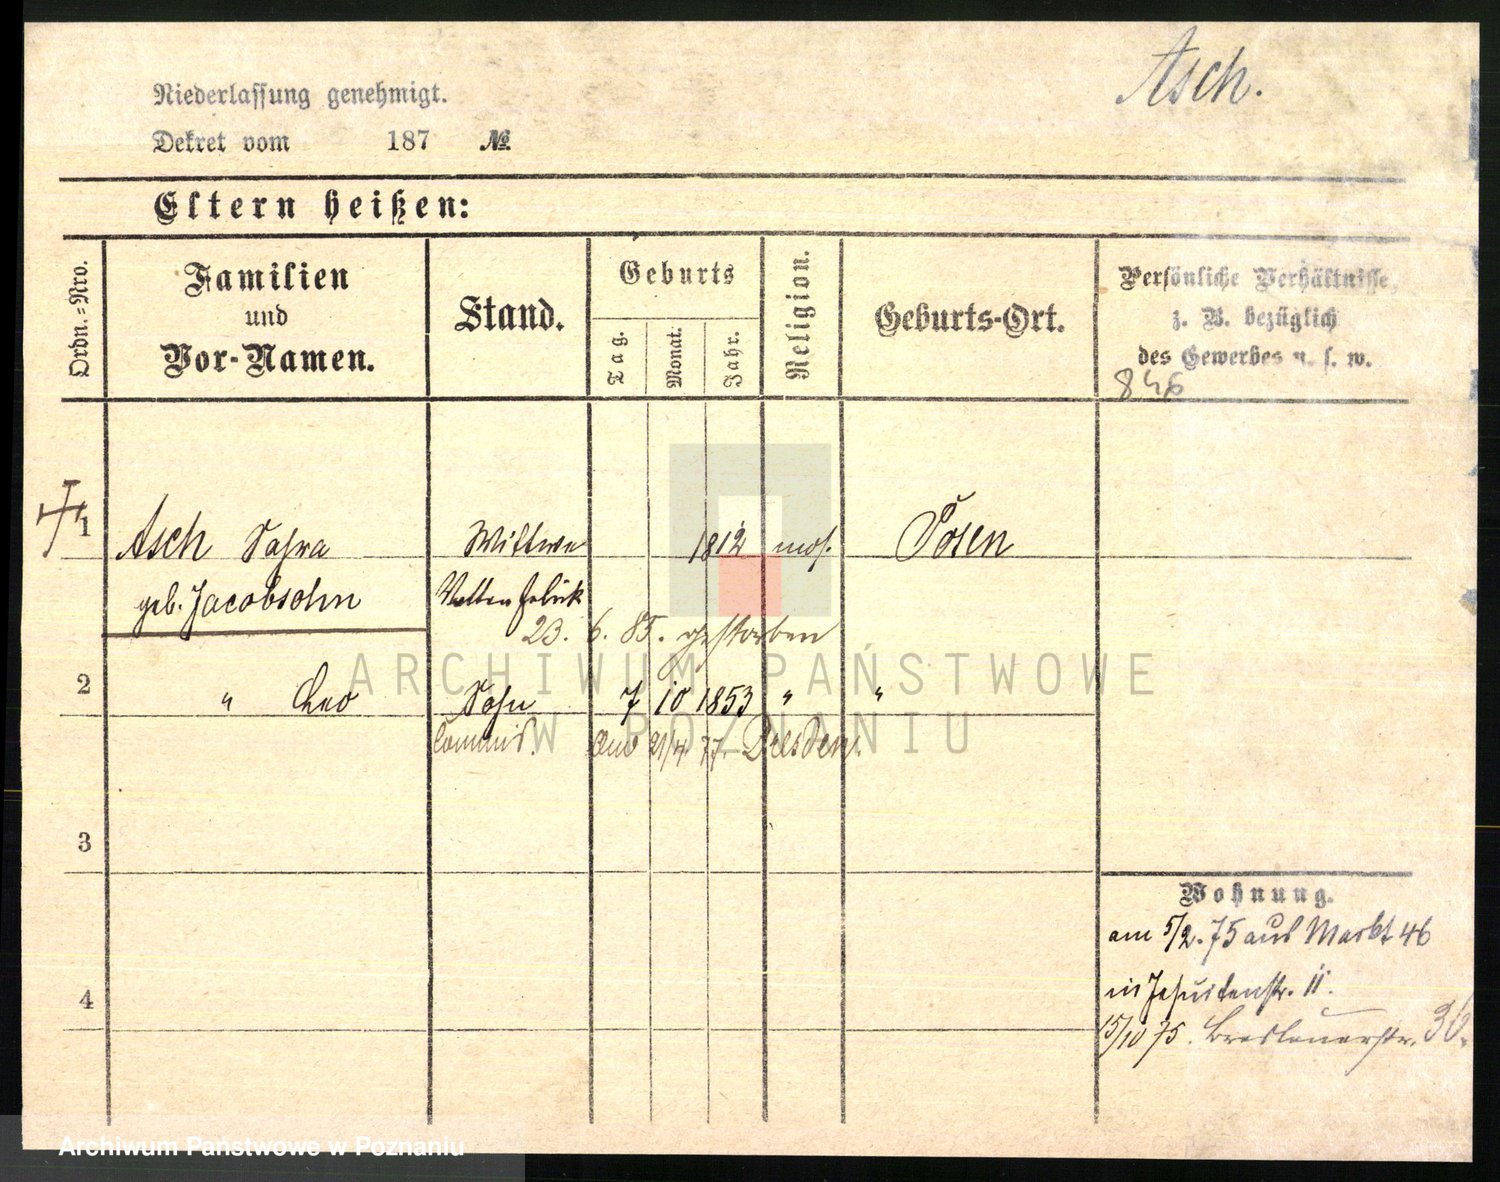 Asch.
Niederlassung genehmigt.
Dekret vom 187 №
Eltern heißen:
Ordn.-Nro.
Familien
und
Vor-Namen.
Stand.
Geburts
Tag.
Monat.
Jahr.
Religion.
Geburts-Ort.
Persönliche Verhältnisse,
z. B. bezüglich
des Gewerbes u. s. w.
846
1 Asch Wittwe 1812 mos. Posen
geb. Jacobsohn
23. 6. 85. gestorben
2 " Leo Sohn 7 10 1853 " "
Commis. 21/4. 77. Dresden.
3
Wohnung.
am 5/2. 75 aus Markt 46
in Jesuitenstr. 11.
4
15/10 75. Breslauerstr. 36.
ARCHIWUM PAŃSTWOWE
W POZNANIU
Archiwum Państwowe w Poznaniu